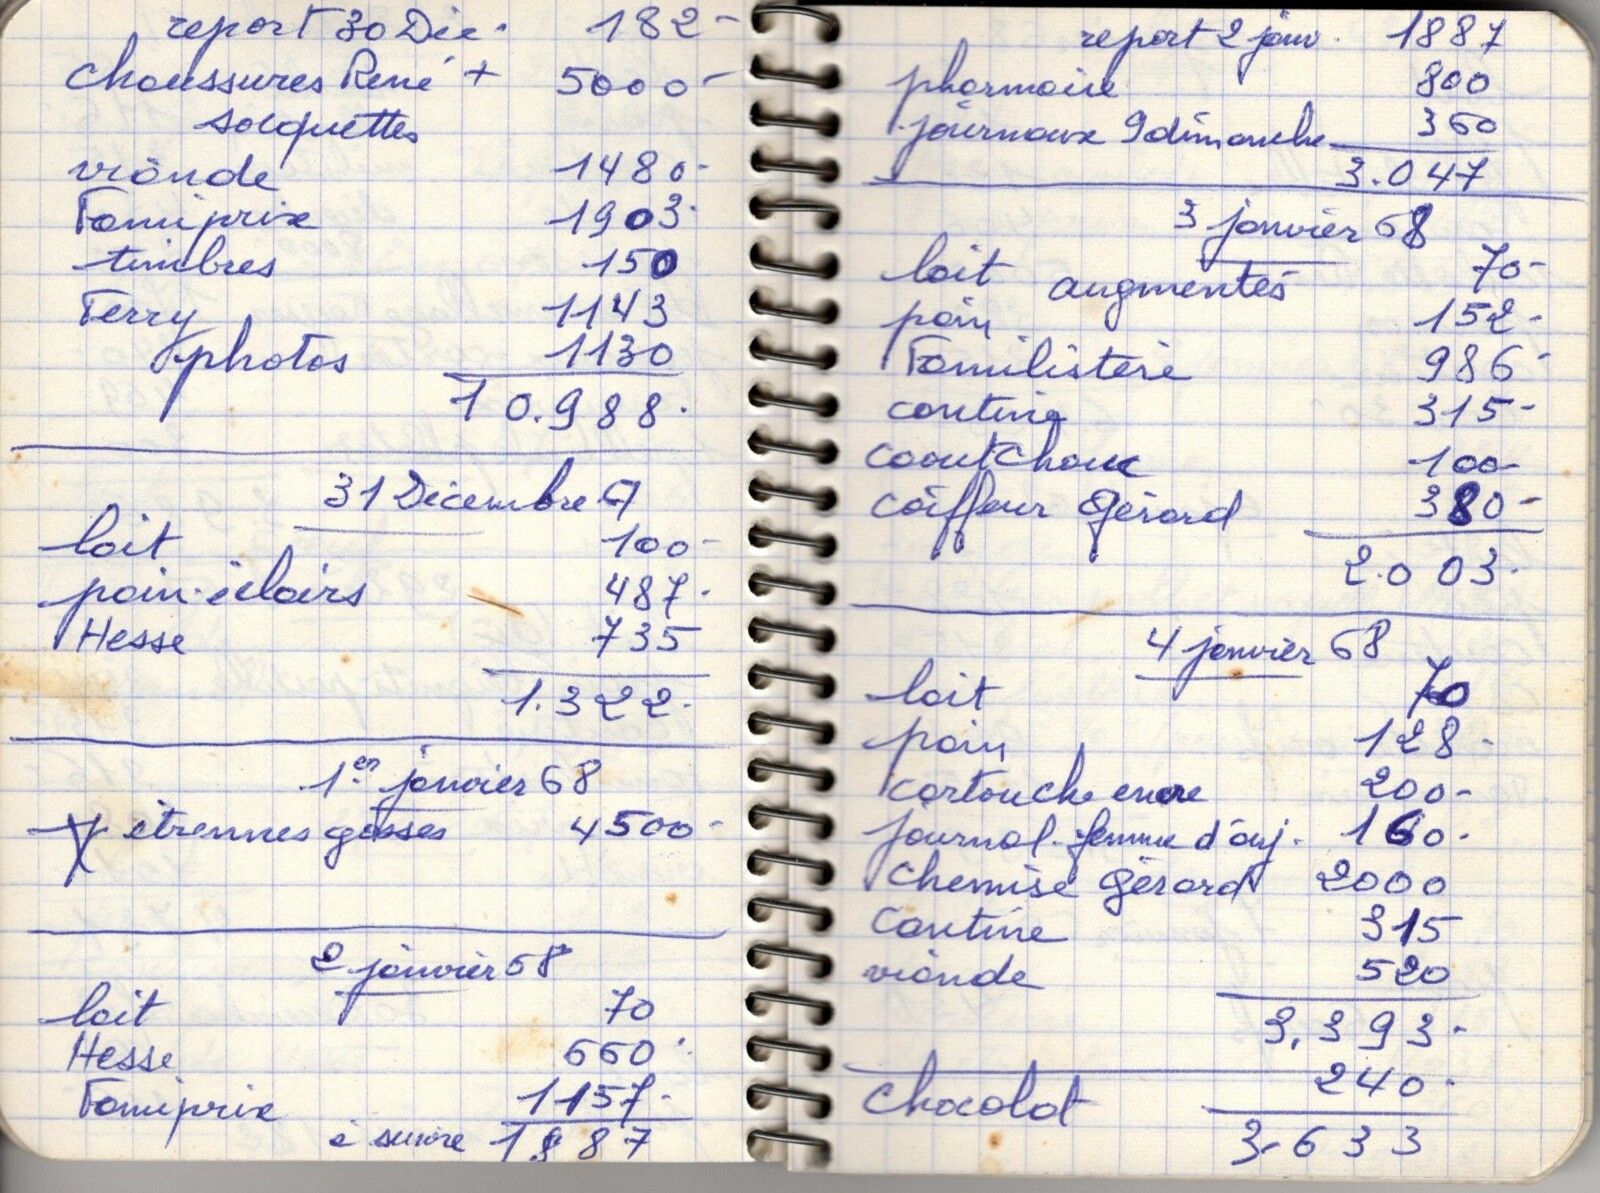 report 30 Déc. 182-
chaussures René + 5000-
socquettes
viande 1480-
Famiprix 1903-
timbres 150
Ferry 1143
photos 1130
10.988.
31 Décembre 67
lait 100-
pain-éclairs 487.
Hesse 735
1.322.
1er janvier 68
étrennes gosses 4500-
2 janvier 68
lait 70
Hesse 660.
Famiprix 1157.
à suivre 1887
report 2 janv. 1887
pharmacie 800
journaux dimanche 360
3.047
3 janvier 68
lait 70-
augmentés
pain 152-
Familistère 986-
cantine 315-
caoutchouc 100-
coiffeur Gérard 380-
2.003.
4 janvier 68
lait 70
pain 128-
cartouche encre 200-
journal-femme d'auj. 160.
chemise Gérard 2000
cantine 315
viande 520
3.393-
chocolat 240.
3.633